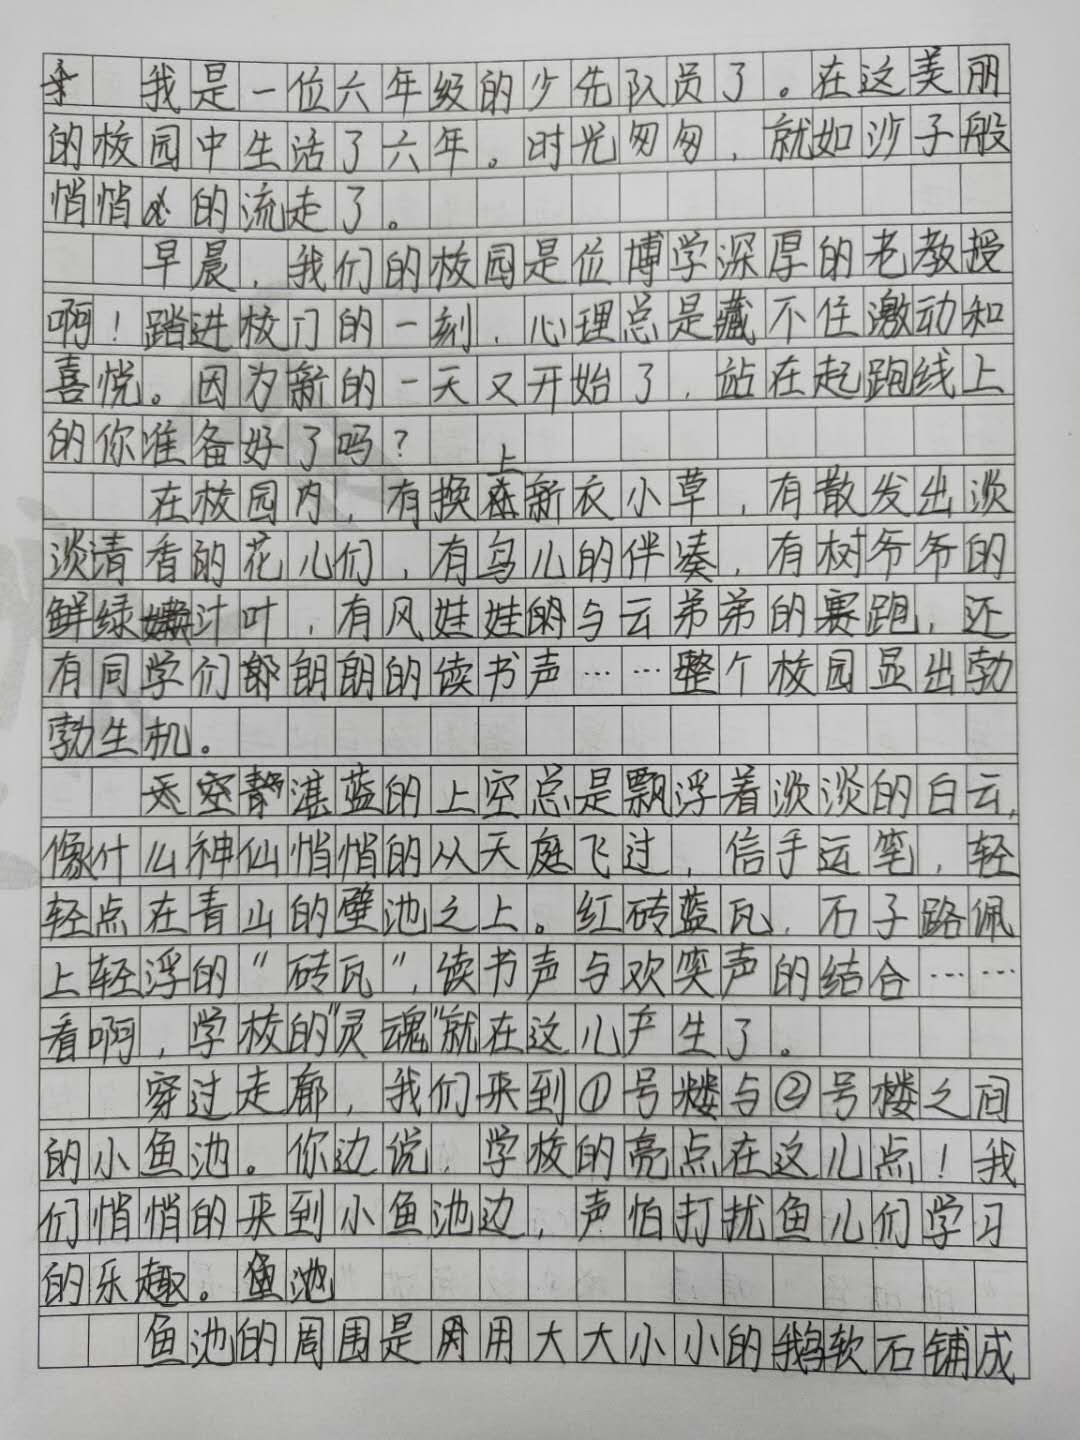 我是一位六年级的少先队员了。在这美丽
的校园中生活了六年。时光匆匆，就如沙子般
悄悄的流走了。
早晨，我们的校园是位博学深厚的老教授
啊！踏进校门的一刻，心理总是藏不住激动和
喜悦。因为新的一天又开始了，站在起跑线上
的你准备好了吗？
在校园内，有换上新衣小草，有散发出淡
淡清香的花儿们，有鸟儿的伴凑，有树爷爷的
鲜绿汁叶，有风娃娃的与云弟弟的赛跑，还
有同学们朗朗的读书声……整个校园显出勃
勃生机。
湛蓝的上空总是飘浮着淡淡的白云，
像什么神仙悄悄的从天庭飞过，信手运笔，轻
轻点在青山的壁池之上。红砖蓝瓦，石子路佩
上轻浮的“砖瓦”，读书声与欢笑声的结合……
看啊，学校的“灵魂”就在这儿产生了。
穿过走廊，我们来到①号楼与②号楼之间
的小鱼池。你边说，学校的亮点在这儿点！我
们悄悄的来到小鱼池边，声怕打扰鱼儿们学习
的乐趣。鱼池
鱼池的周围是用大大小小的鹅软石铺成